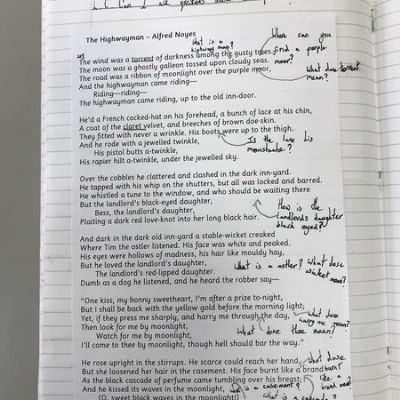 The Highwayman – Alfred Noyes
Hat is a highway man?
Where can you find a purple moor?
The wind was a torrent of darkness among the gusty trees,
The moon was a ghostly galleon tossed upon cloudy seas.
The road was a ribbon of moonlight over the purple moor,
What dose torrent mean?
And the highwayman came riding –
Riding—riding—
The highwayman came riding, up to the old inn-door.
He'd a French cocked-hat on his forehead, a bunch of lace at his chin,
A coat of the claret velvet, and breeches of brown doe-skin.
They fitted with never a wrinkle. His boots were up to the thigh.
And he rode with a jewelled twinkle,
Is the lace his moustache?
His pistol butts a-twinkle,
His rapier hilt a-twinkle, under the jewelled sky.
Over the cobbles he clattered and clashed in the dark inn-yard.
He tapped with his whip on the shutters, but all was locked and barred.
He whistled a tune to the window, and who should be waiting there
But the landlord's black-eyed daughter,
Bess, the landlord's daughter,
Plaiting a dark red love-knot into her long black hair.
How is the landlords daughter black eyed?
And dark in the dark old inn-yard a stable-wicket creaked
Where Tim the ostler listened. His face was white and peaked.
His eyes were hollows of madness, his hair like mouldy hay,
But he loved the landlord's daughter,
What is a osther? What dose wicket mean?
The landlord's red-lipped daughter.
Dumb as a dog he listened, and he heard the robber say—
"One kiss, my bonny sweetheart, I'm after a prize to-night,
But I shall be back with the yellow gold before the morning light;
Yet, if they press me sharply, and harry me through the day,
what dose harry me mean?
Then look for me by moonlight,
What dose thou mean?
Watch for me by moonlight,
I'll come to thee by moonlight, though hell should bar the way."
He rose upright in the stirrups. He scarce could reach her hand,
But she loosened her hair in the casement. His face burnt like a brand
what dose burnt like a brand mean?
As the black cascade of perfume came tumbling over his breast;
And he kissed its waves in the moonlight,
what is a casement?
(O, sweet black waves in the moonlight!)
what is a cascade?